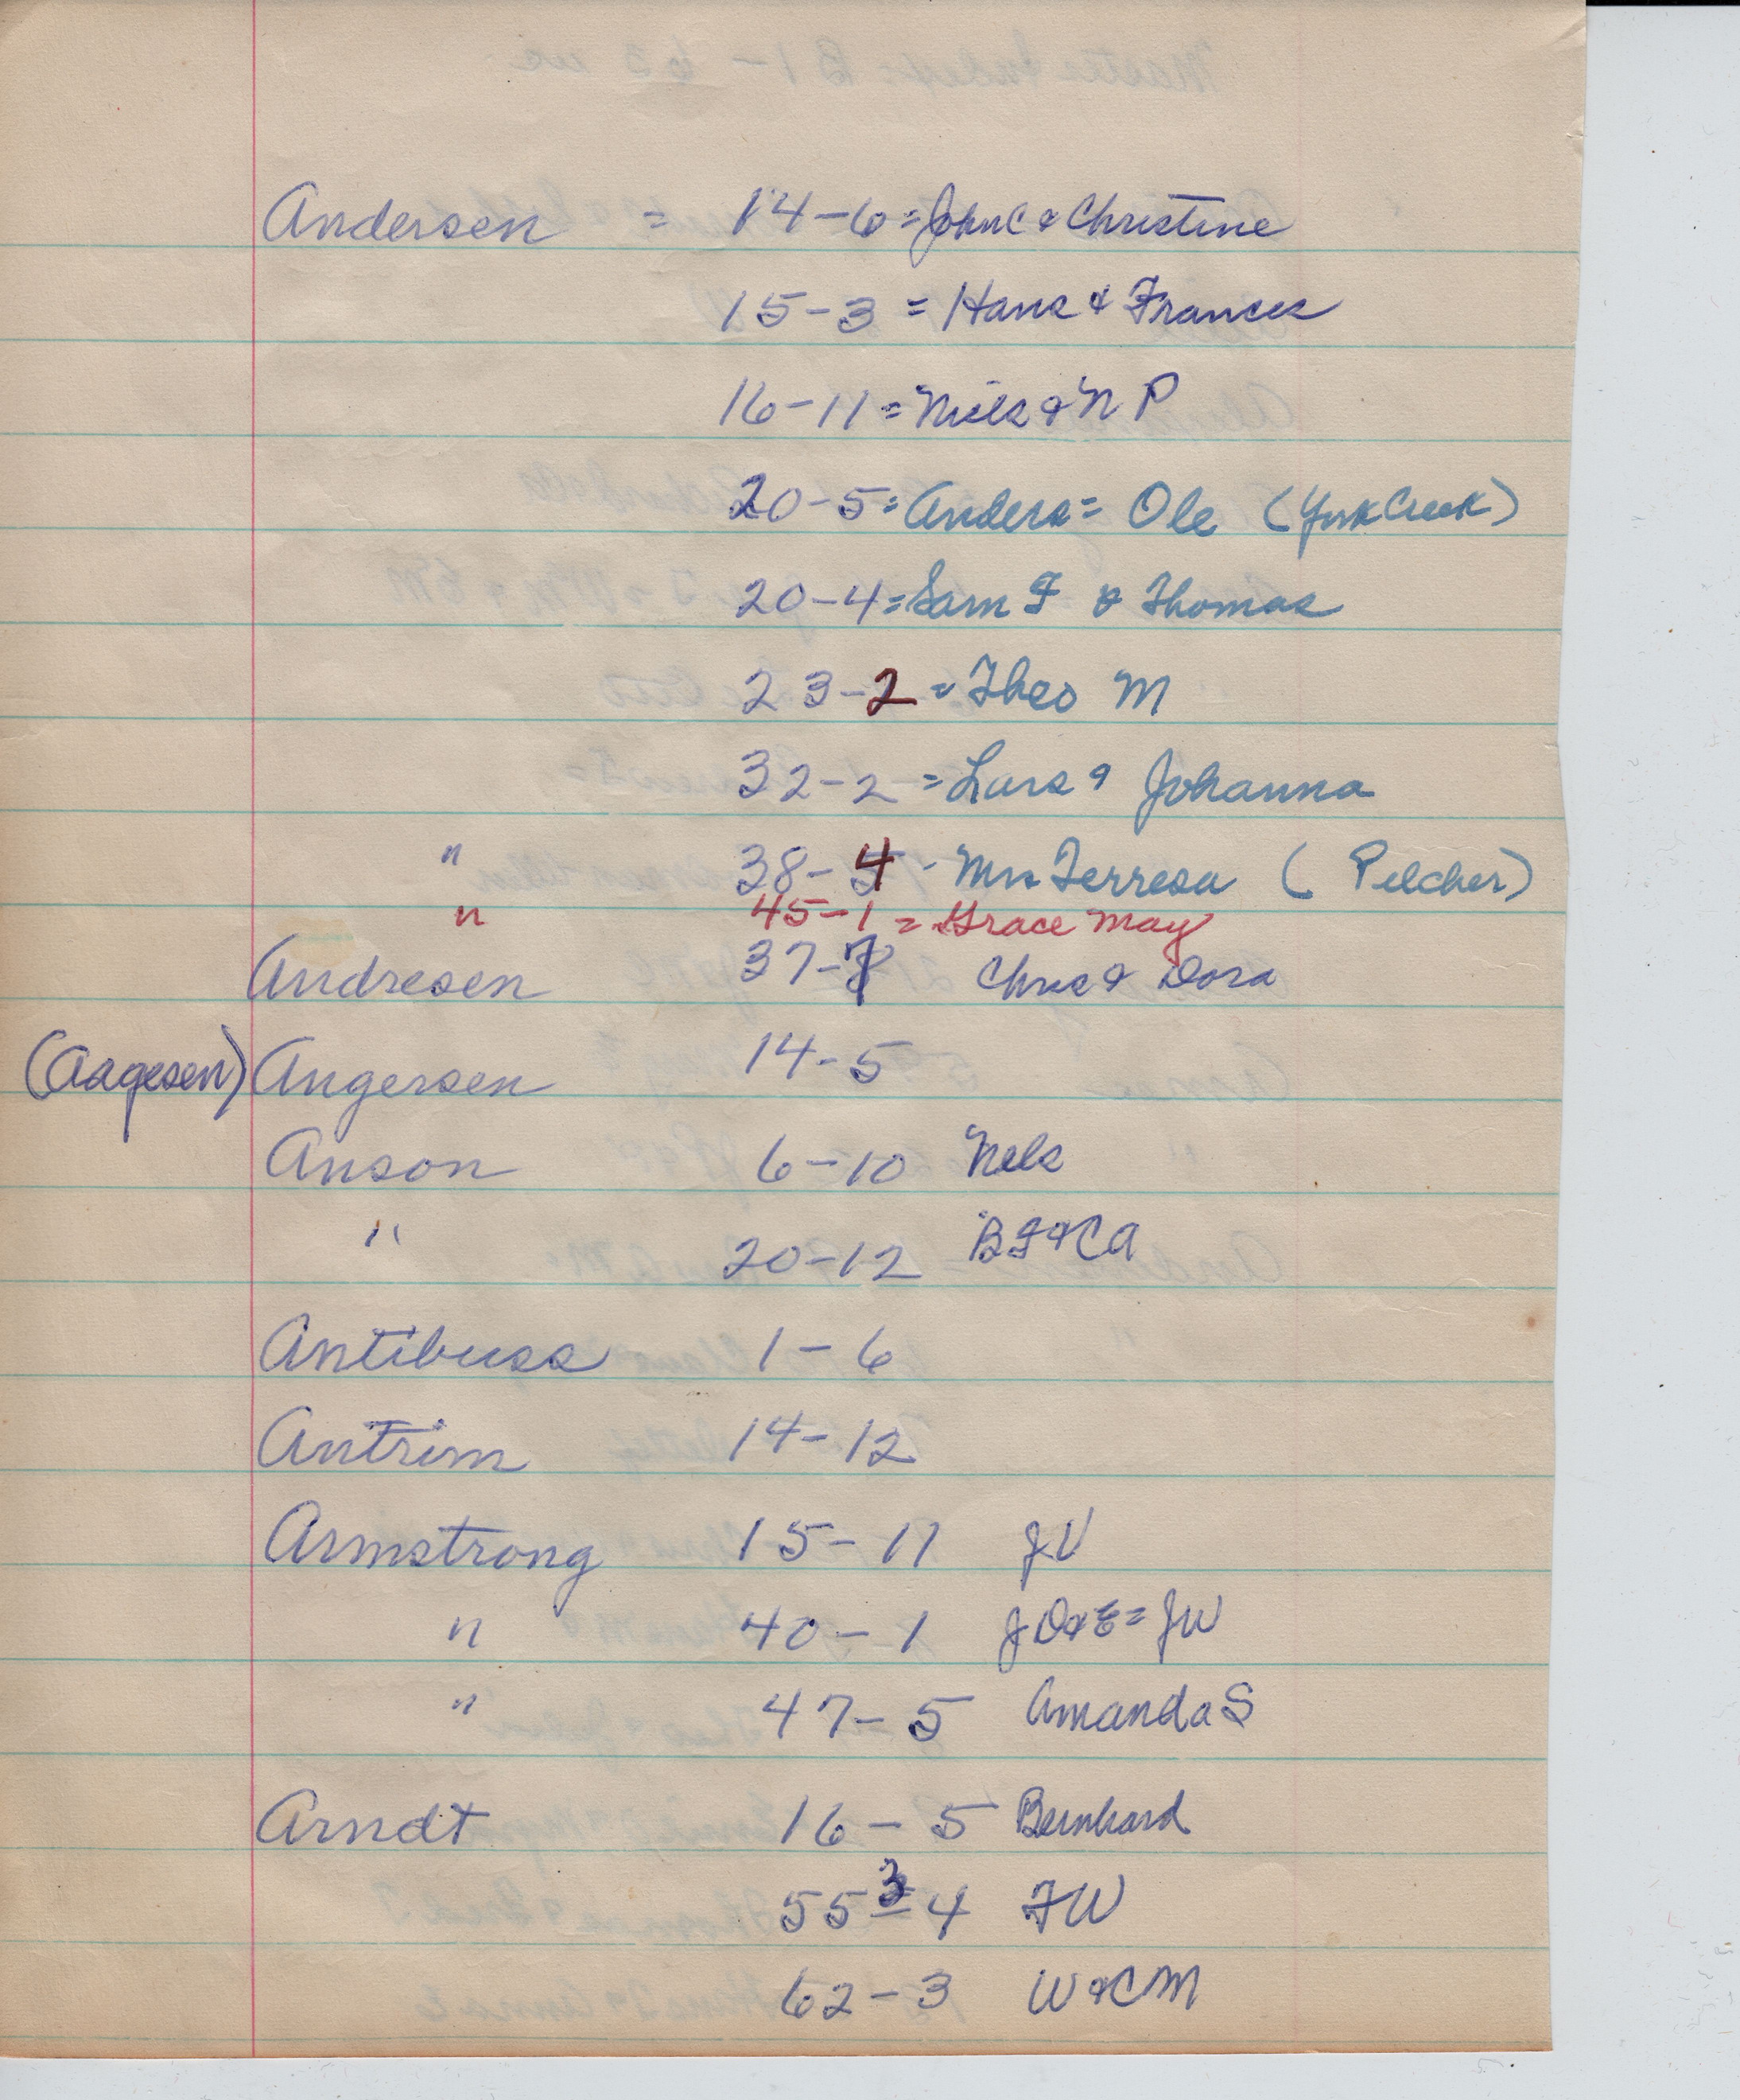 Andersen = 14-6 = John C & Christine
15-3 = Hans & Frances
16-11 = Niels & N P
20-5 = Anders = Ole (York Creek)
20-4 = Sam F & Thomas
23-2 = Theo M
32-2 = Lars & Johanna
" 38-4 - Mrs Terresa (Pelcher)
" 45-1 = Grace May
Andresen 37-7 Chris & Dora
(Aagesen) Angersen 14-5
Anson 6-10 Nels
" 20-12 B F & C A
Antibuss 1-6
Antrim 14-12
Armstrong 15-11 J V
" 40-1 J D & E = J W
" 47-5 Amanda S
Arndt 16-5 Bernhard
55 3-4 F W
62-3 W & C M